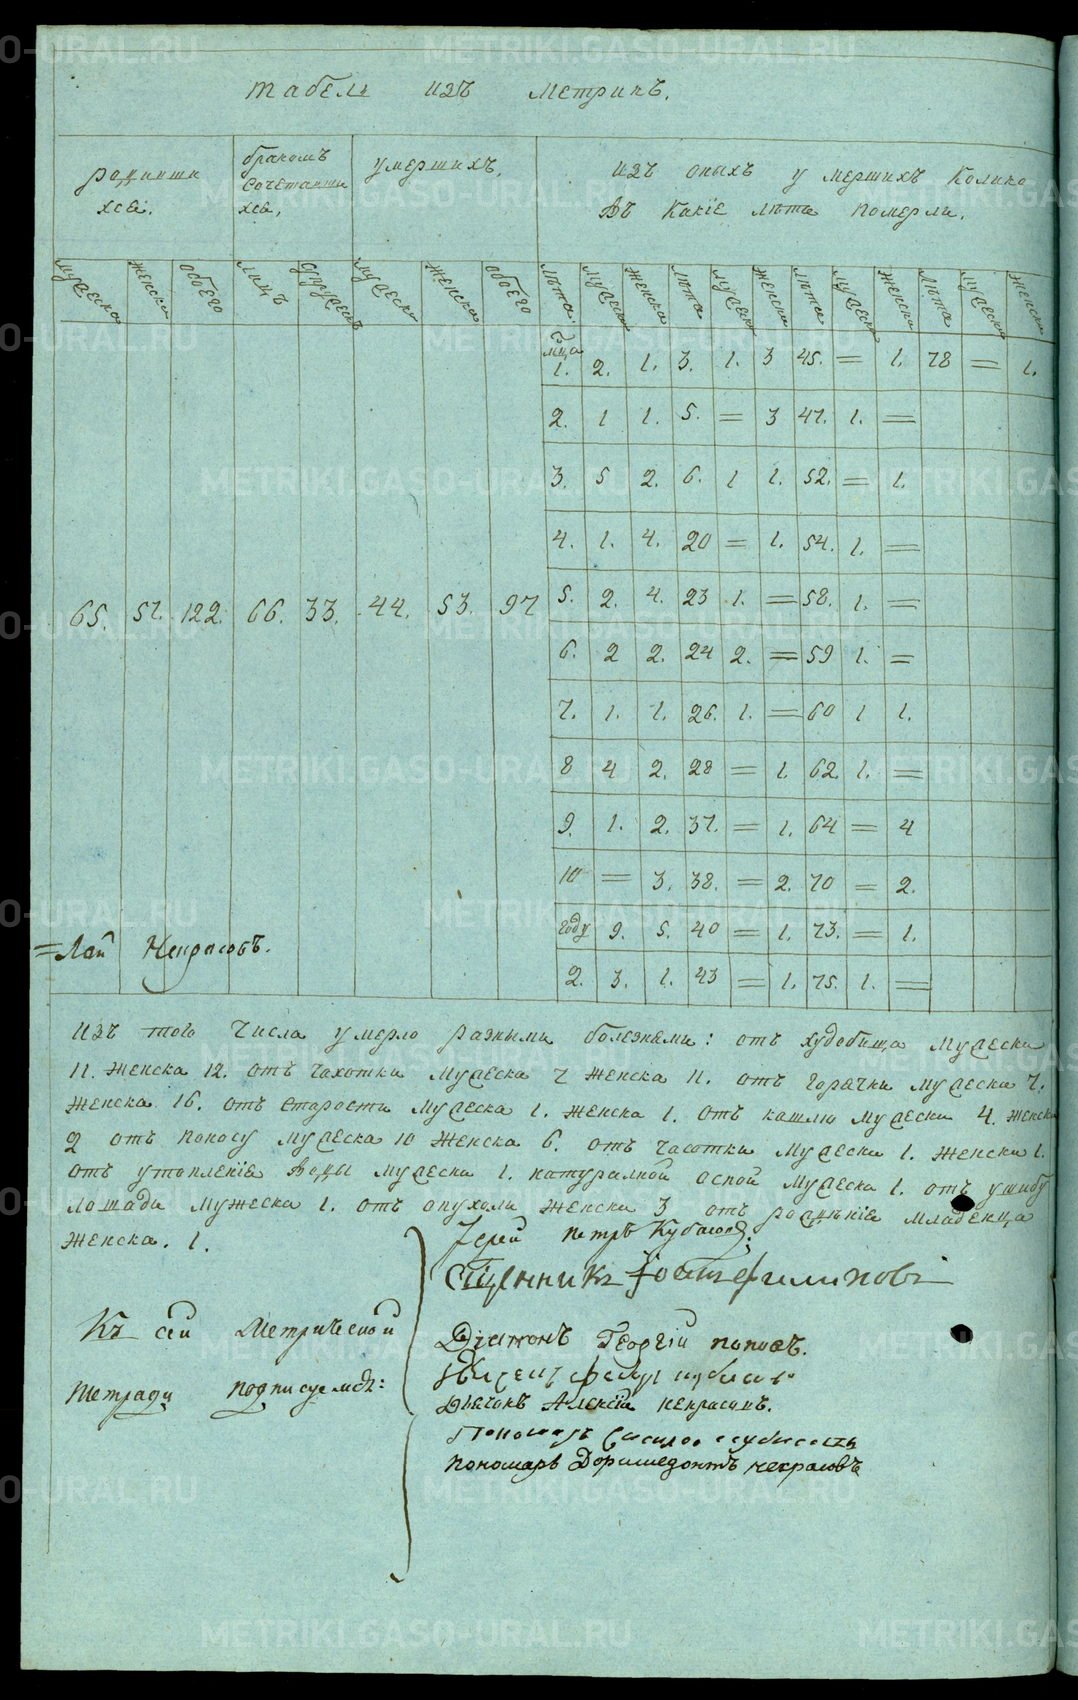 Табель изъ Метрикъ.
родивши
хся.
бракомъ
Сочетавши
хся,
умершихъ,
изъ оныхъ умершихъ Колико
Въ Какіе лѣта померли.
мужеска женска обоего лицъ мужеска женска обоего лѣта мужеска женска лѣта мужеска женска лѣта мужеска женска лѣта мужеска женска
мца
1. 2. 1. 3. 1. 3 45. = 1. 78 = 1.
2. 1 1. 5. = 3 47. 1. =
3. 5 2. 6. 1 1. 52. = 1.
4. 1. 4. 20 = 1. 54. 1. =
65. 57. 122. 66. 33. 44. 53. 97 5. 2. 4. 23 1. = 58. 1. =
6. 2 2. 24 2. = 59 1. =
7. 1. 1. 26. 1. = 60 1 1.
8 4 2. 28 = 1. 62. 1. =
9. 1. 2. 37. = 1. 64 = 4
10 = 3. 38. = 2. 70 = 2.
году 9. 5. 40 = 1. 73. = 1.
=лай Некрасовъ.
2. 3. 1. 43 = 1. 75. 1. =
изъ того Числа умерло разными болезнями: отъ худобища Мужеска
11. Женска 12. отъ чахотки Мужеска 7 Женска 11. отъ горячки Мужеска 7.
Женска 16. отъ Старости Мужеска 1. Женска 1. отъ кашлю Мужеска 4. Женска
2 отъ поносу Мужеска 10 Женска 6. отъ часотки Мужеска 1. Женска 1.
отъ утопленія Воды Мужеска 1. натуралной оспой Мужеска 1. отъ ушибу
Лошади Мужеска 1. отъ опухоли Женска 3 отъ рожденія младенца
Женска. 1.
Іерей Петръ Кубасовъ.
Сщенникъ Филиповъ
Къ сей Метрической
Діаконъ Георгій поповъ.
Тетради подписуемся:
Дьячокъ Алексій некрасовъ.
Пономарь
пономарь Доримедонтъ некрасовъ
METRIKI.GASO-URAL.RU